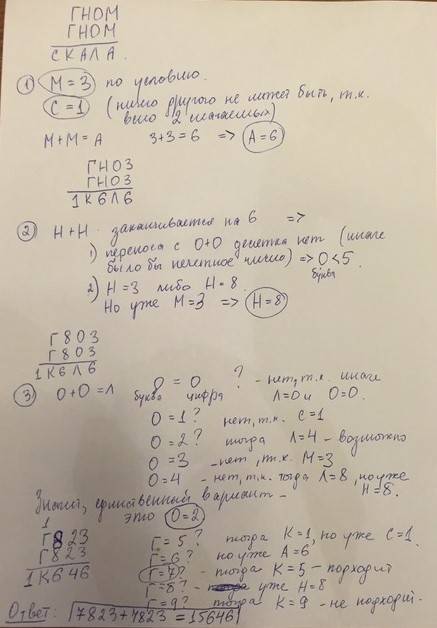 ГНОМ
ГНОМ
СКАЛА.
① М = 3 по условию.
С = 1 (ничто другого не может быть, т.к.
всего 2 слагаемых)
М+М = А 3+3=6 => А=6
ГНО3
ГНО3
1К6Л6
② Н+Н заканчивается на 6 =>
1) переноса с О+О десятка нет (иначе
было бы нечетное число) => О<5.
буква
2) Н=3 либо Н=8.
Но уже М=3 => Н=8
Г8О3
Г8О3
1К6Л6
③ О+О = Л
О = 0 ? - нет, т.к. иначе
буква цифра Л=0 и О=0.
О = 1? нет, т.к. С=1
О = 2? тогда Л=4 - возможно
О = 3 - нет, т.к. М=3
О = 4 - нет, т.к. тогда Л=8, но уже
Н=8.
Значит, единственный вариант -
это О=2
1
Г823
Г823
1К646
Г = 5? тогда К=1, но уже С=1.
Г = 6? но уже А=6
Г = 7? - тогда К=5 - подходит
Г = 8? - уже Н=8
Г = 9? тогда К=9 - не подходит.
Ответ: 7823+7823 = 15646